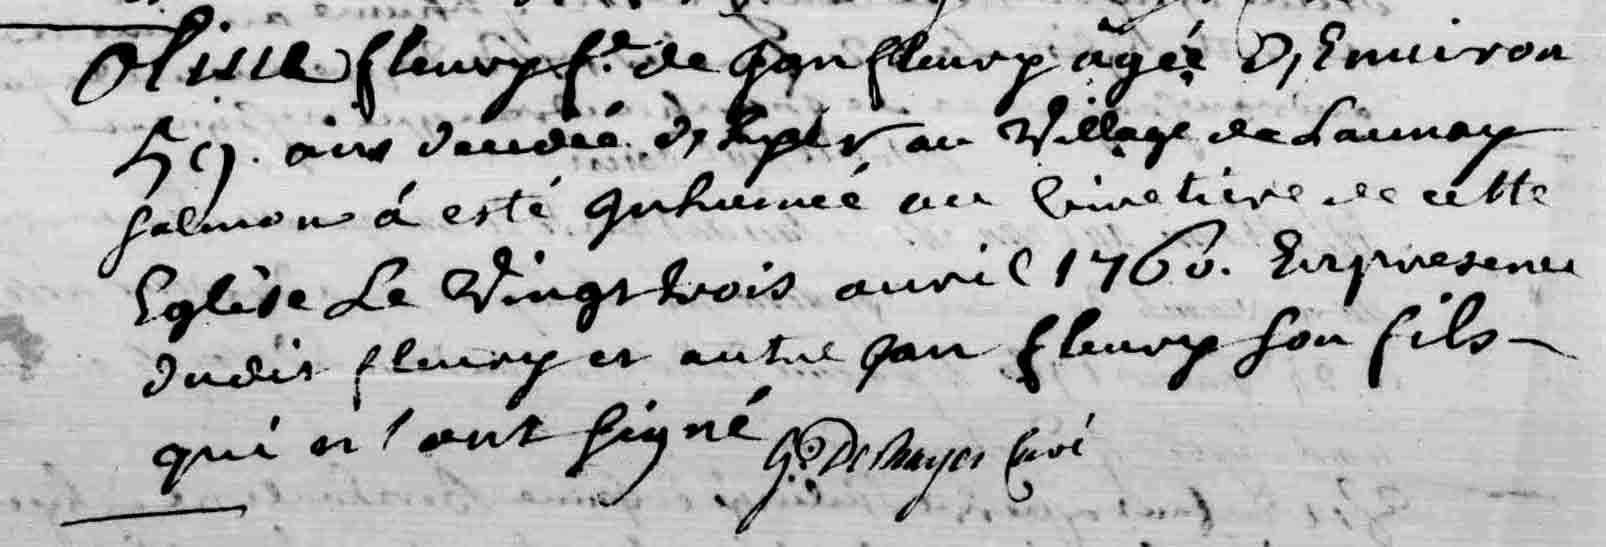 Olive fleury f.e de Jan fleury âgée d'Environ
59. ans décédée d'hyer au Village de Launay
Salmon á esté Inhumée au Cimetiere de cette
Eglise Le Vingt trois avril 1760. En presence
dudit fleury et autre Jan fleury son fils
qui n'ont signé
G. Deshayes Curé